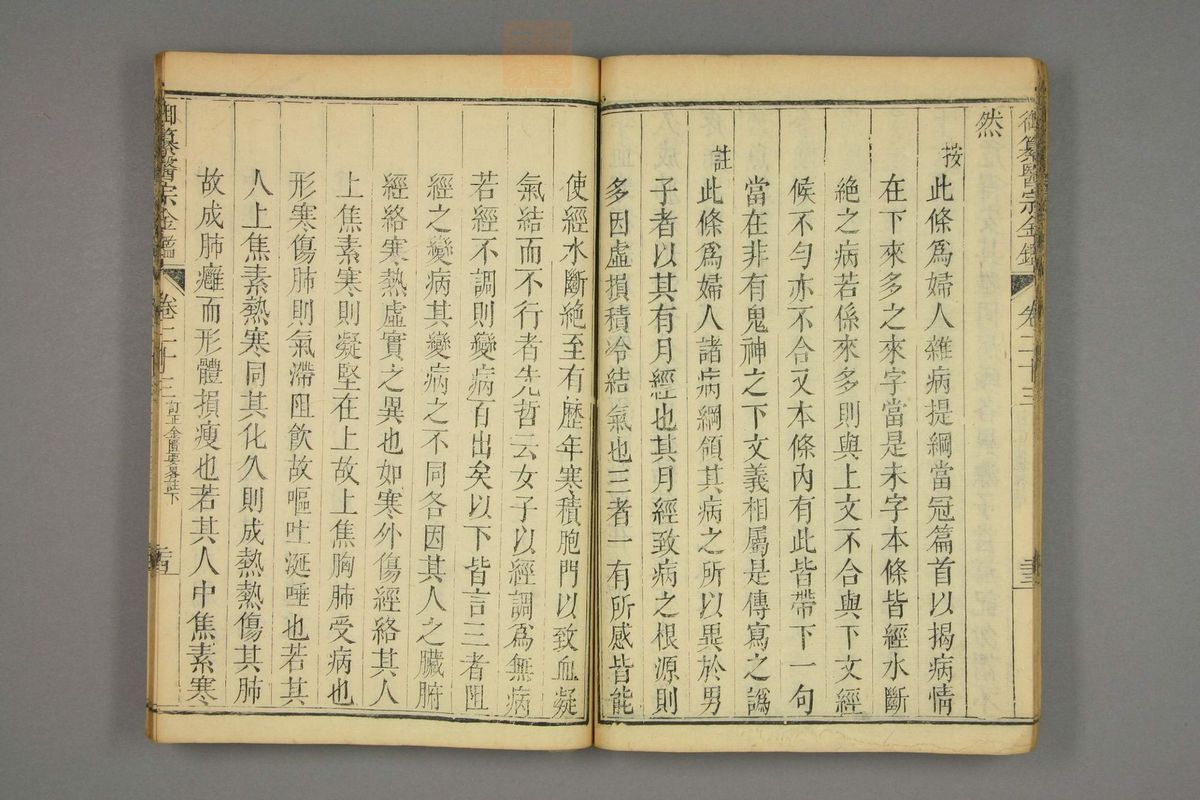 御纂醫宗金鑑 卷二十三
然
按 此條爲婦人雜病提綱當冠篇首以揭病情
在下來多之來字當是未字本條皆經水斷
絶之病若係來多則與上文不合與下文經
候不勻亦不合又本條內有此皆帶下一句
當在非有鬼神之下文義相屬是傳寫之譌
註 此條爲婦人諸病綱領其病之所以異於男
子者以其有月經也其月經致病之根源則
多因虛損積冷結氣也三者一有所感皆能
使經水斷絶至有歷年寒積胞門以致血凝
氣結而不行者先哲云女子以經調爲無病
若經不調則變病百出矣以下皆言三者阻
經之變病其變病之不同各因其人之臟腑
經絡寒熱虛實之異也如寒外傷經絡其人
上焦素寒則凝堅在上故上焦胸肺受病也
形寒傷肺則氣滯阻飲故嘔吐涎唾也若其
人上焦素熱寒同其化久則成熱熱傷其肺
故成肺癰而形體損瘦也若其人中焦素寒
御纂醫宗金鑑 卷二十三 訂正金匱要畧註下